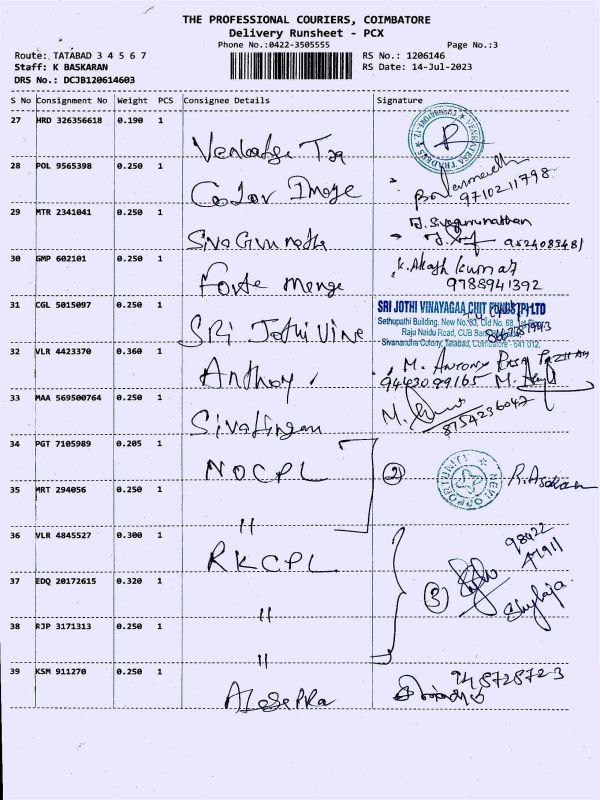 THE PROFESSIONAL COURIERS, COIMBATORE
Delivery Runsheet - PCX
Phone No.:0422-3505555 Page No.:3
Route: TATABAD 3 4 5 6 7 RS No.: 1206146
Staff: K BASKARAN RS Date: 14-Jul-2023
DRS No.: DCJB120614603
S No Consignment No Weight PCS Consignee Details Signature
27 HRD 326356618 0.190 1
28 POL 9565398 0.250 1 Color Image 9710211798
29 MTR 2341041 0.250 1 J. Sivagurunathan
30 GMP 602101 0.250 1 Forte K. Akash kumar
9788941392
31 CGL 5015097 0.250 1 SRi Jothi Vine SRI JOTHI VINAYAGAA CHIT FUNDS (P) LTD
Sethupathi Building, New No. 83, Old No. 68,
Raju Naidu Road, CUB
Sivanandha Colony, Tatabad, Coimbatore - 641 012.
32 VLR 4423370 0.360 1 Anthony M. Antony
9443099165 M.
33 MAA 569500764 0.250 1 Sivalingam M.
8754236047
34 PGT 7105989 0.205 1 NOCPL 2 R. Asokan
35 MRT 294056 0.250 1 "
36 VLR 4845527 0.300 1 RKCPL 98422
41911
37 EDQ 20172615 0.320 1 " 3 Shylaja
38 RJP 3171313 0.250 1 "
39 KSM 911270 0.250 1 948728723